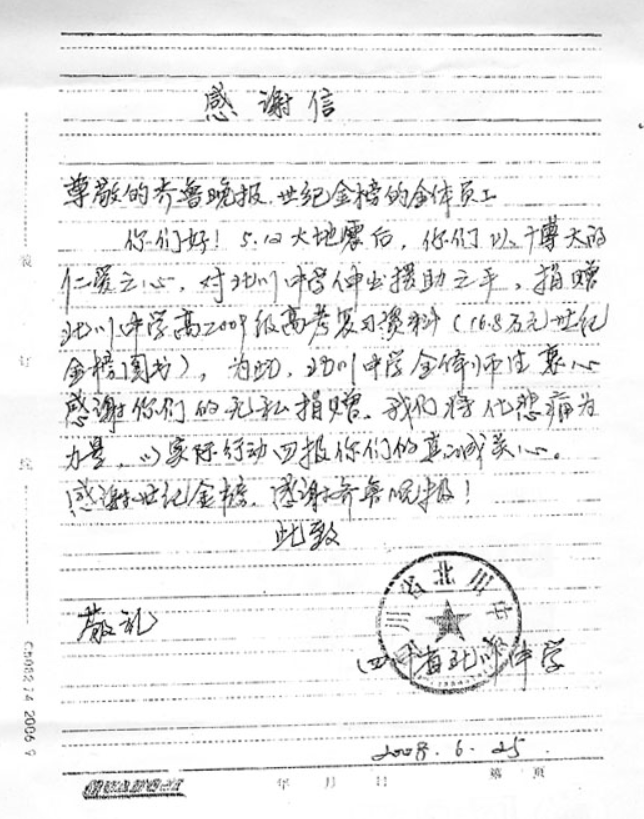 感谢信
尊敬的齐鲁晚报、世纪金榜的全体员工
你们好！5.12大地震后，你们以博大的
仁爱之心，对北川中学伸出援助之手，捐赠
北川中学高2009级高考复习资料（16.8万元世纪
金榜图书），为此，北川中学全体师生衷心
感谢你们的无私捐赠。我们将化悲痛为
力量，以实际行动回报你们的真诚关心。
感谢世纪金榜，感谢齐鲁晚报！
此致
敬礼
川省北川中
四川省北川中学
2008.6.25.
年 月 日 第 页
装
订
线